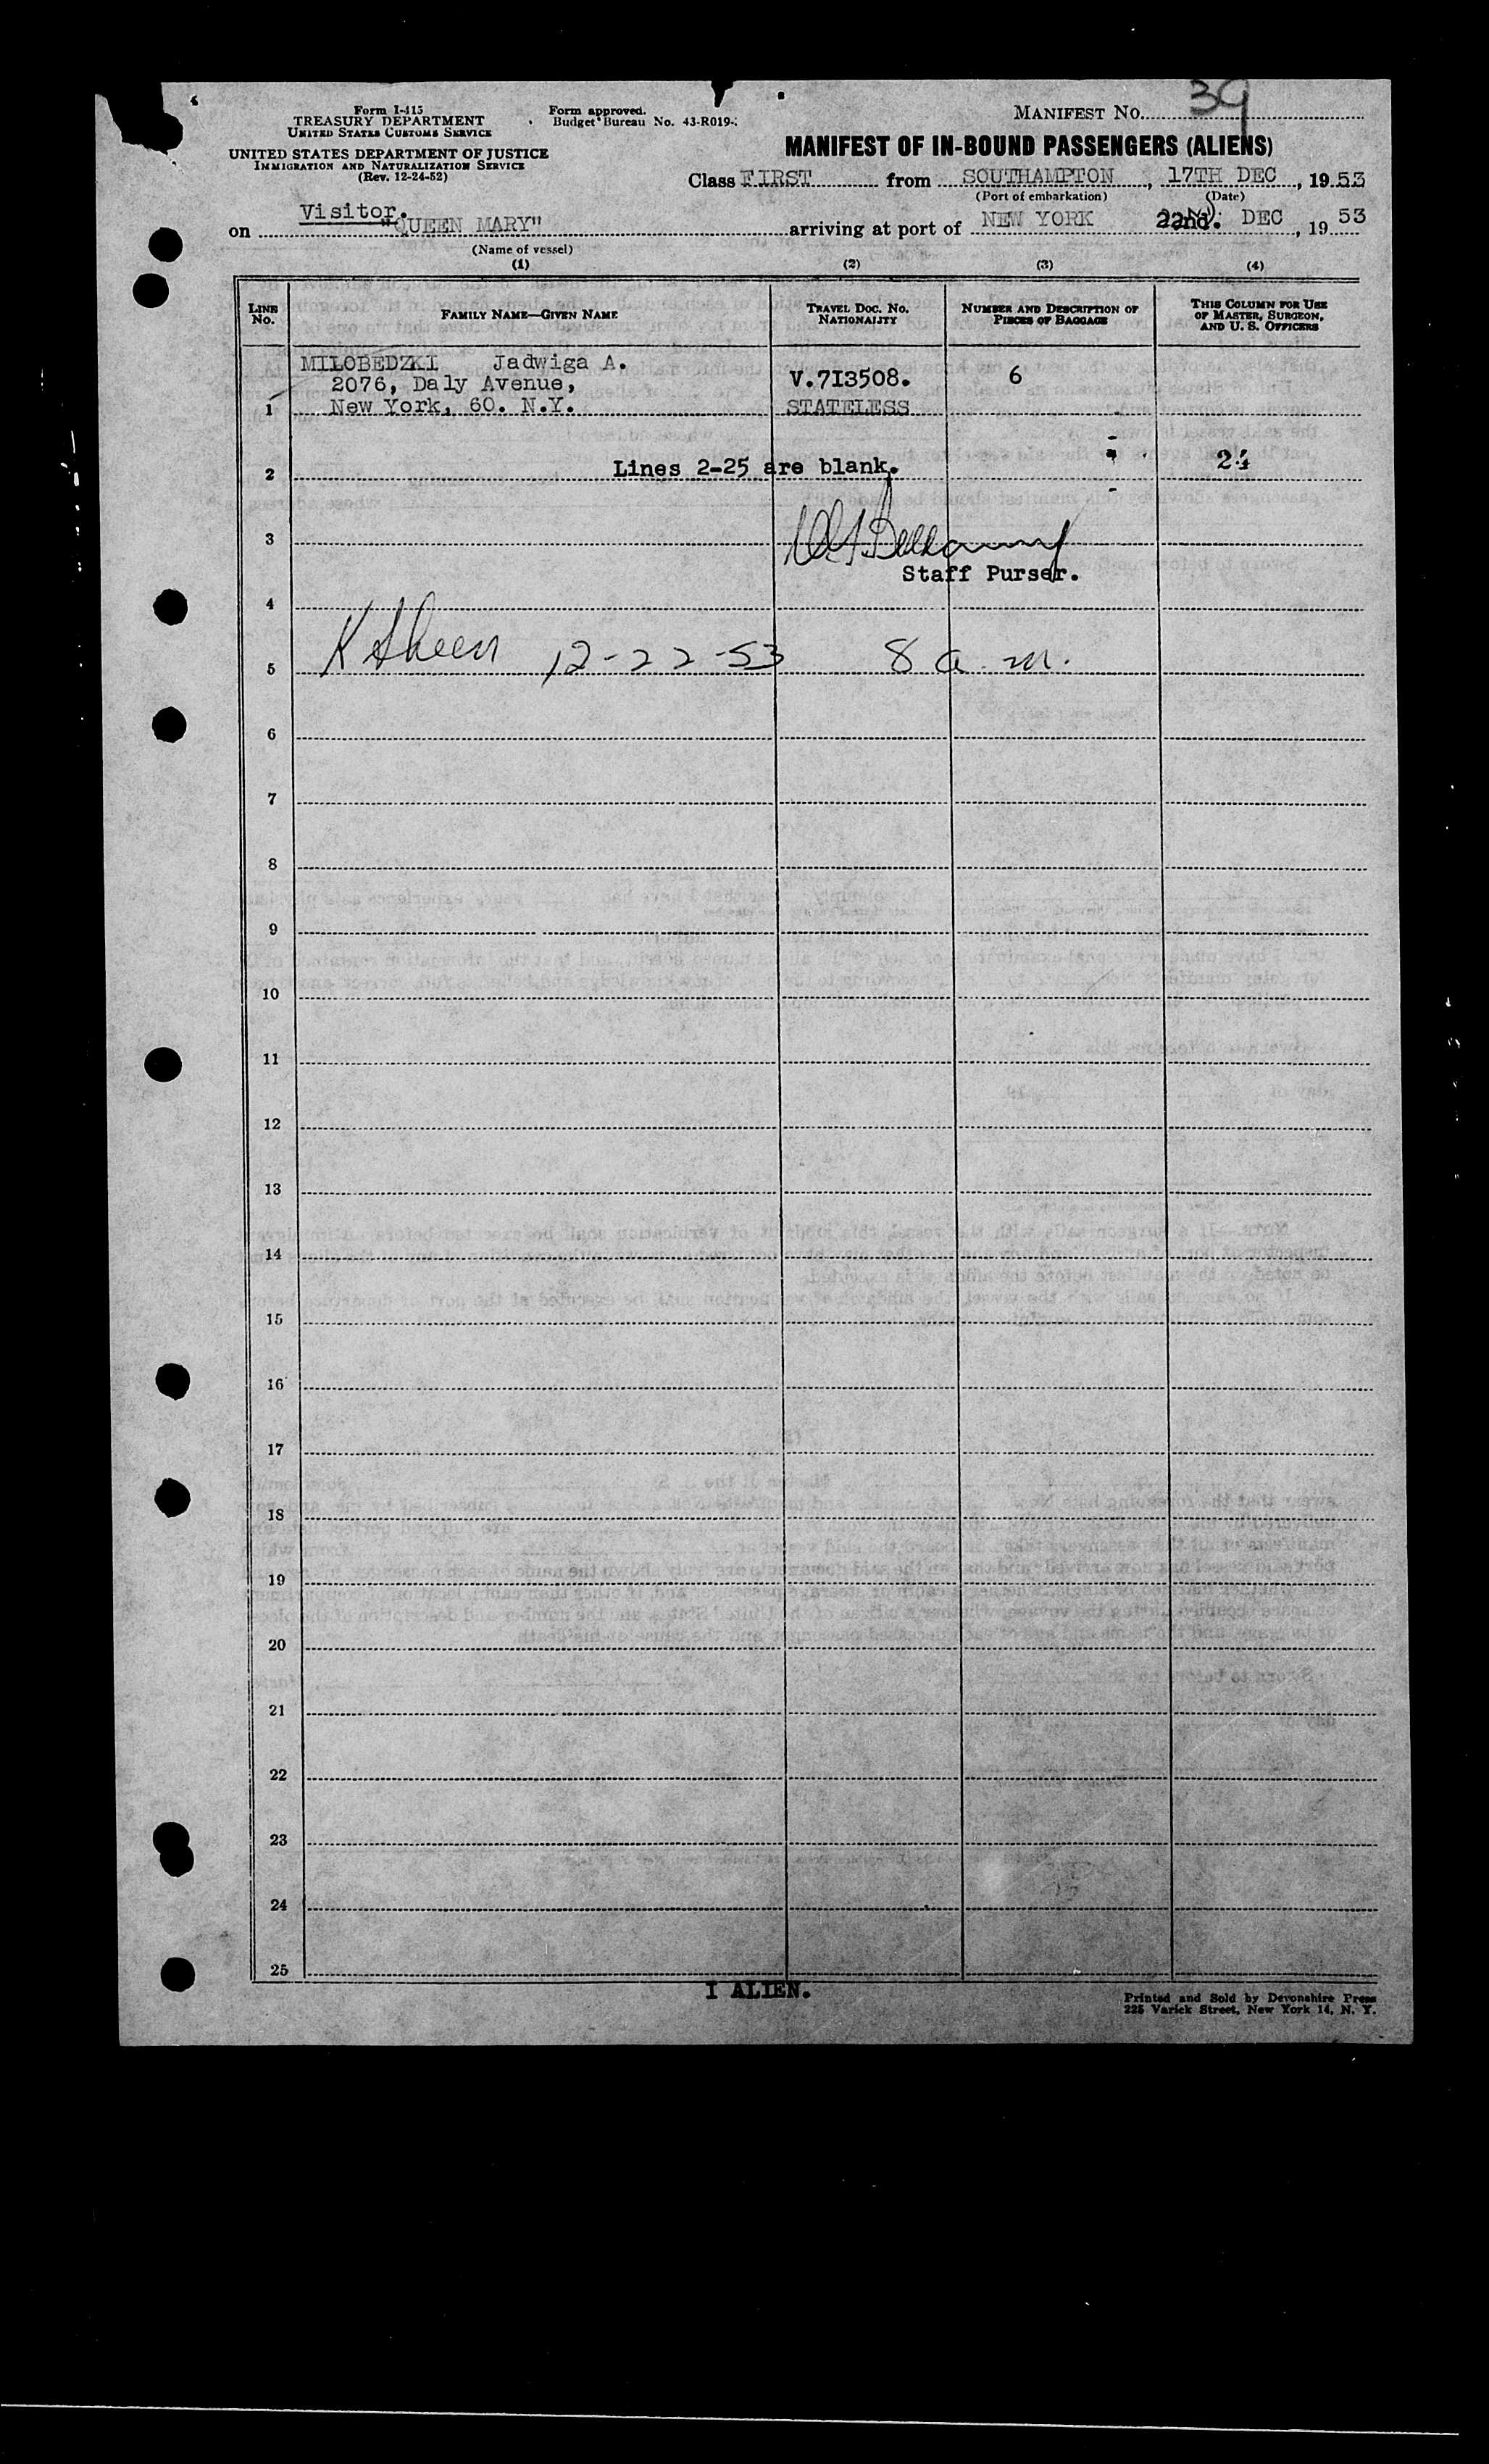 Form I-415
TREASURY DEPARTMENT
UNITED STATES CUSTOMS SERVICE
UNITED STATES DEPARTMENT OF JUSTICE
IMMIGRATION AND NATURALIZATION SERVICE
(Rev. 12-24-52)
Form approved.
Budget Bureau No. 43-R019-
MANIFEST NO. 39
MANIFEST OF IN-BOUND PASSENGERS (ALIENS)
Class FIRST from SOUTHAMPTON, 17TH DEC, 1953
(Port of embarkation) (Date)
Visitor.
on "QUEEN MARY" arriving at port of NEW YORK 22nd. DEC, 1953
(Name of vessel)
(1) (2) (3) (4)
LINE NO. FAMILY NAME—GIVEN NAME TRAVEL DOC. NO. NATIONALITY NUMBER AND DESCRIPTION OF PIECES OF BAGGAGE THIS COLUMN FOR USE OF MASTER, SURGEON, AND U. S. OFFICERS
MILOBEDZKI Jadwiga A.
2076, Daly Avenue, V.7I3508. 6
1 New York, 60. N.Y. STATELESS
2 Lines 2-25 are blank. 24
3
Staff Purser.
4
5 12-22-53 8 a.m.
6
7
8
9
10
11
12
13
14
15
16
17
18
19
20
21
22
23
24
25
I ALIEN.
Printed and Sold by Devonshire Press
225 Varick Street, New York 14, N. Y.